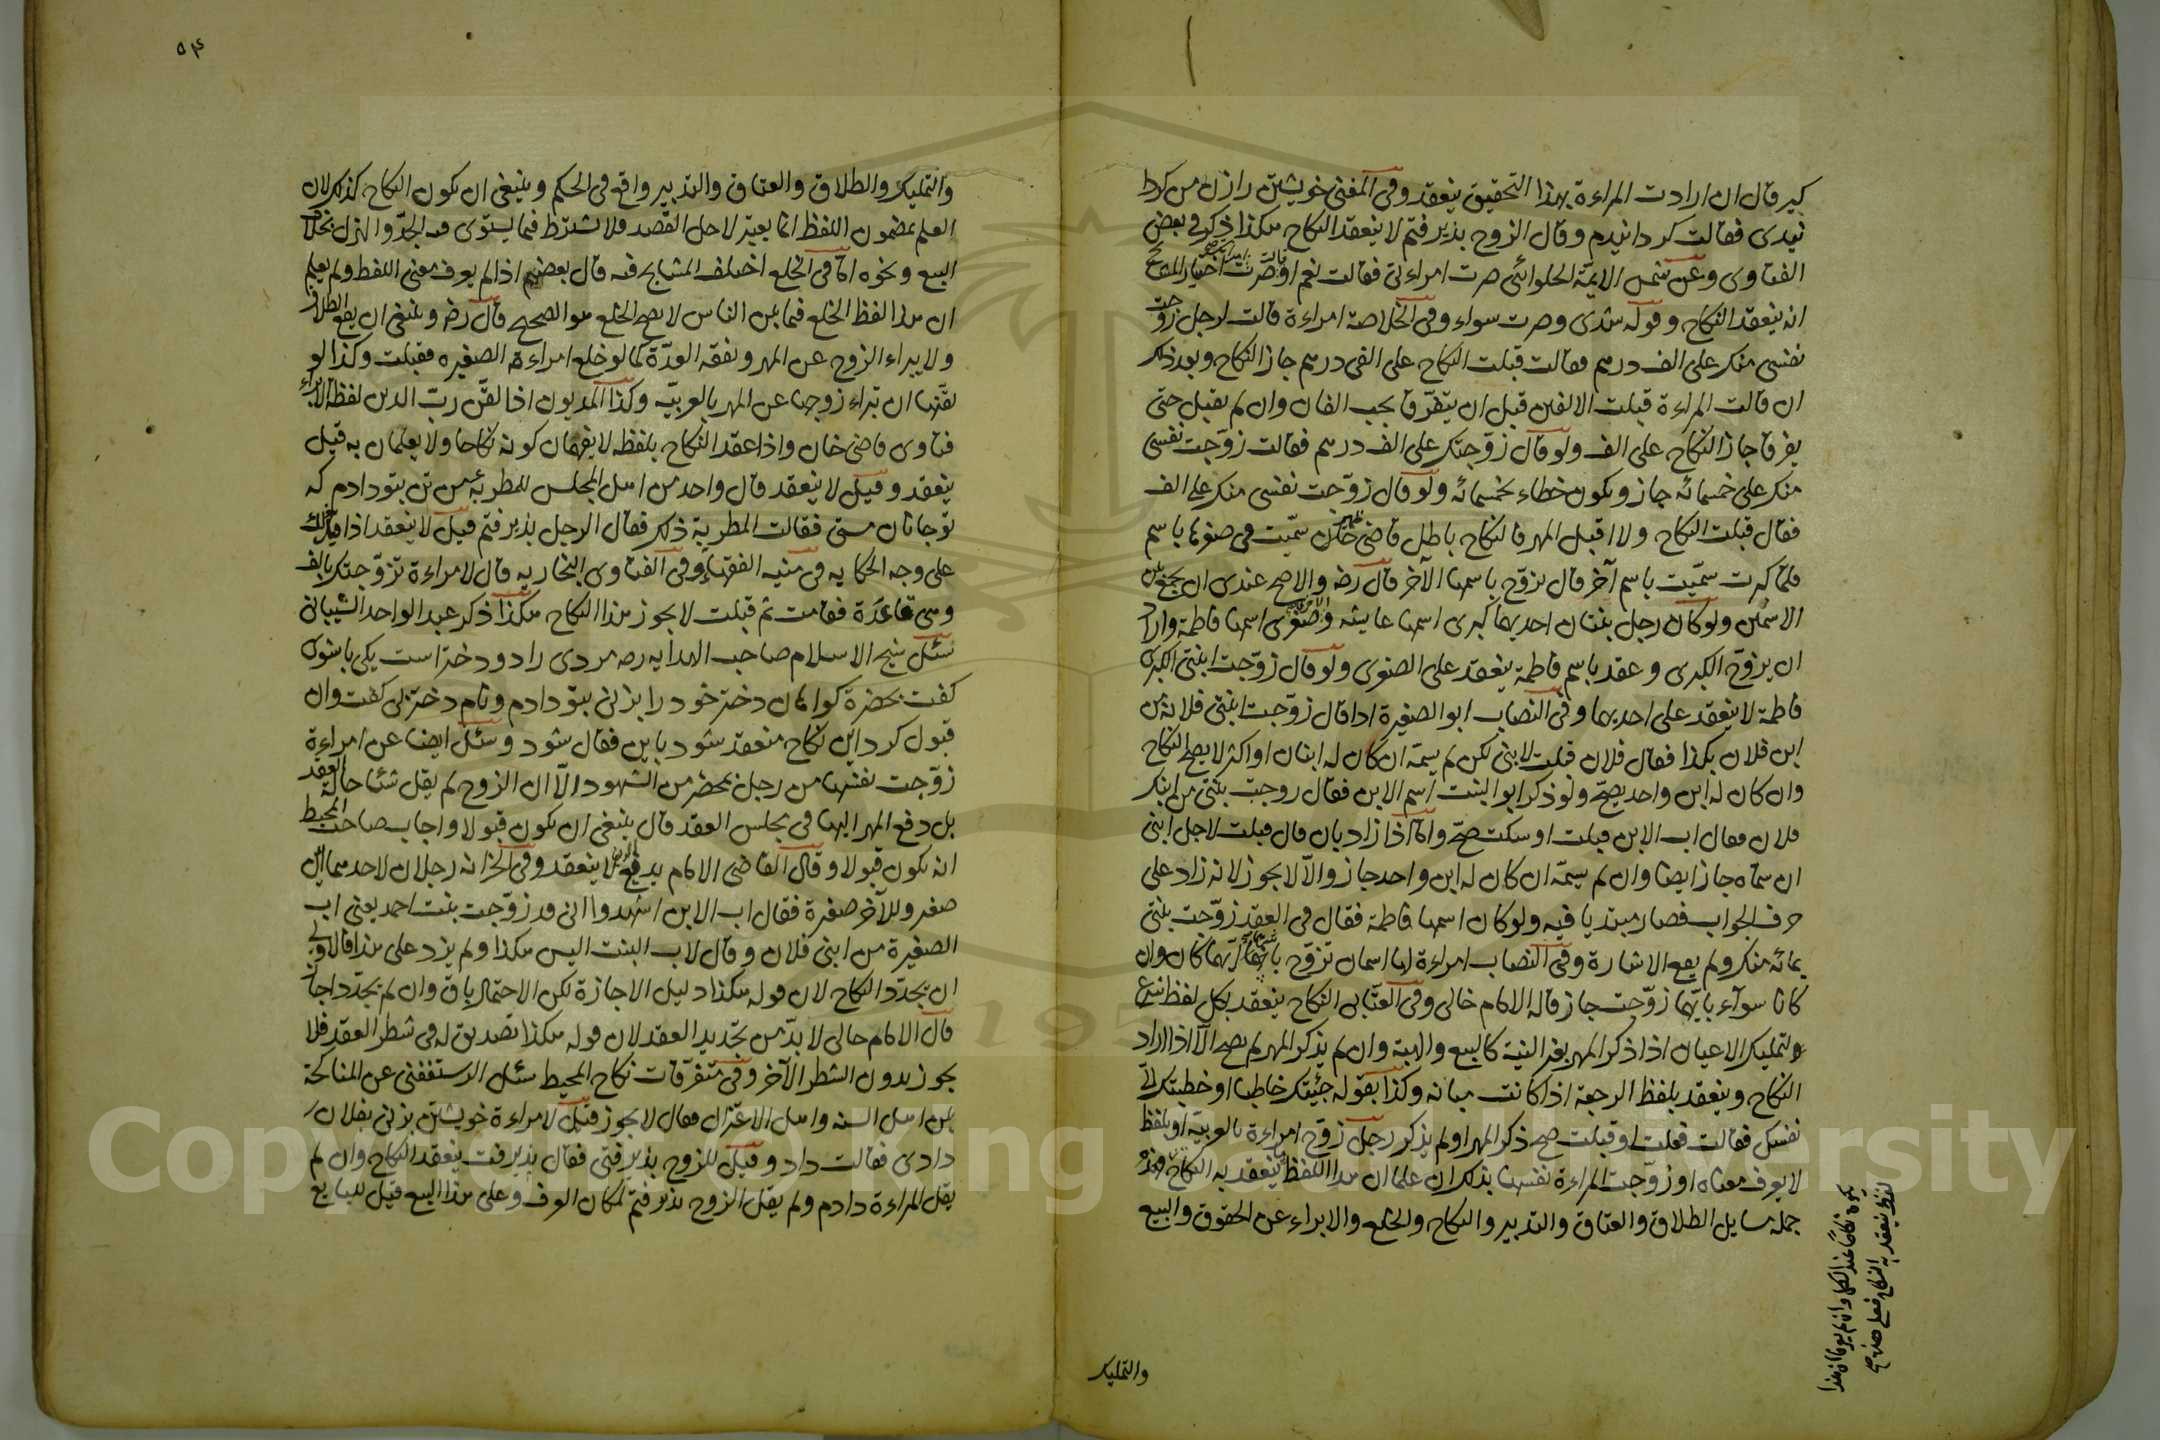 كير قال ان ارادت المراءة بهذا التحقيق ينعقد وفى المغنى خويشتن را زن من كردا
نيدى فقالت كردانيدم وقال الزوج بذيرفتم لا ينعقد النكاح هكذا ذكر فى بعض
الفتاوى وعن شمس الايمة الحلوائى صرت امراءتى فقالت نعم او صرت اختيار المشايخ
انه ينعقد النكاح وقوله شدى وصرت سواء وفى الخلاصة امراءة قالت لرجل زوجت
نفسى منك على الف درهم فقالت قبلت النكاح على الفى درهم جاز النكاح وبعد ذلك
ان قالت المراءة قبلت الالفين قبل ان يتفرقا يجب الفان وان لم يقبل حتى
يفرقا جاز النكاح على الف ولو قال زوجتك على الف درهم فقالت زوجت نفسى
منك على خمسمائه جاز ويكون خطاء بخمسمائه ولو قال زوجت نفسى منك على الف
فقال قبلت النكاح ولا اقبل المهر فالنكاح باطل قاضى خان سميت فى صغرها باسم
فلما كبرت سميت باسم آخر قال تزوج باسمها الآخر قال رضه والاصح عندى ان يجمع بين
الاسمين ولو كان رجل بنتان احديهما كبرى اسمها عايشه وصغرى اسمها فاطمة واراد
ان يزوج الكبرى وعقد باسم فاطمة ينعقد على الصغرى ولو قال زوجت ابنتى الكبرى
فاطمة لا ينعقد على احديهما وفى النصاب ابو الصغيرة اذا قال زوجت ابنتى فلانة من
ابن فلان بكذا فقال فلان قبلت لابنى لكن لم يسمه ان كان له ابنان او اكثر لا يصح النكاح
وان كان له ابن واحد يصح ولو ذكر ابو البنت اسم الابن فقال زوجت بنتى من ابنك
فلان فقال اب الابن قبلت او سكت صح واما اذا زاد بان قال قبلت لاجل ابنى
ان سماه جاز ايضا وان لم يسمه ان كان له ابن واحد جاز والا لا يجوز لانه زاد على
حرف الجواب فصار مبتديا فيه ولو كان اسمها فاطمة فقال فى العقد زوجت بنتى
بمائه منك ولم يقع الاشارة وفى النصاب امراءة لها اسمان تزوج بايهما كان وان
كانا سوآء بايهما زوجت جاز قاله الامام خالى وفى العتابى النكاح ينعقد بكل لفظ شرع
لتمليك الاعيان اذا ذكر المهر بغير النية كالبيع والهبة وان لم يذكر المهر لم يصح الا اذا اراد
النكاح وينعقد بلفظ الرجعة اذا كانت مبانه وكذا بقوله جئتك خاطبا او خطبتك لا
نفسك فقالت فعلت او قبلت صح ذكر المهر او لم يذكر رجل زوج امراءة بالعربية او بلفظ
لا يعرف معناه او زوجت المراءة نفسها بذلك ان علما ان هذا اللفظ ينعقد به النكاح وهذه
جملة مسايل الطلاق والعتاق والتدبير والنكاح والخلع والابراء عن الحقوق والبيع
لفظ ينعقد به النكاح
والتمليك
٥٤
والتمليك والطلاق والعتاق والتدبير واقع فى الحكم وينبغى ان يكون النكاح كذلك لان
العلم بمضمون اللفظ انما يعتبر لاجل القصد فلا يشترط فيما يستوى فيه الجد والهزل بخلاف
البيع ونحوه اما فى الخلع اختلف المشايخ فيه قال بعضهم اذا لم يعرف معنى اللفظ ولم يعلم
ان هذا لفظ الخلع فيما بين الناس لا يصح الخلع هو الصحيح قال رضه وينبغى ان يقع الطلاق
ولا يبراء الزوج عن المهر ونفقه العدة كما لو خلع امراءة الصغيره فقبلت وكذا لو
لقنها ان تبراء زوجها عن المهر بالعربيه وكذا المديون اذا لقن رب الدين لفظة الابراء
فتاوى قاضى خان واذا عقد النكاح بلفظ لا يفهمان كونه نكاحا ولا يعلمان به قيل
ينعقد وقيل لا ينعقد قال واحد من اهل المجلس للمطربة من تن بتو دادم كه
تو جانان منى فقالت المطربة ذلك فقال الرجل بذيرفتم قيل لا ينعقد اذا قالت
على وجه الحكايه فى منيه الفقهاء وفى الفتاوى البخاريه قال لامراءة تزوجتك بالف
وهى قاعدة فقامت ثم قبلت لا يجوز هذا النكاح هكذا ذكر عبد الواحد الشيبانى
سئل شيخ الاسلام صاحب الهدايه رحه مردى را دو دختر است يكى با شوى
كفت بحضرة كواهان دختر خود را بزنى بتو دادم ونام دختر نى كفت وان
قبول كرد اين نكاح منعقد شود يا نى فقال شود وسئل ايضا عن امراءة
زوجت نفسها من رجل بمحضر من الشهود الا ان الزوج لم يقل شئا حالة العقد
بل دفع المهر اليها فى مجلس العقد قال ينبغى ان يكون قبولا واجاب صاحب المحيط
انه يكون قبولا وقال القاضى الامام بديع لا ينعقد وفى الخزانه رجلان لاحدهما ابن
صغير وللآخر صغيرة فقال اب الابن اشهدوا انى قد زوجت بنت احمد يعنى اب
الصغيرة من ابنى فلان وقال لاب البنت اليس هكذا ولم يزد على هذا فالاولى
ان يجدد النكاح لان قوله هكذا دليل الاجازة لكن الاحتمال باق وان لم يجدد اجاز
قال الامام خالى لا بد من تجديد العقد لان قوله هكذا تصديق له فى شطر العقد فلا
يجوز بدون الشطر الآخر وفى متفرقات نكاح المحيط سئل الرستغفنى عن المناكحة
بين اهل السنه واهل الاعتزال فقال لا يجوز قيل لامراءة خويشتن بزنى بفلان
دادى فقالت داد وقيل للزوج بذيرفتى فقال بذيرفت ينعقد النكاح وان لم
يقل المراءة دادم ولم يقل الزوج بذيرفتم لمكان العرف وعلى هذا البيع قيل للبايع